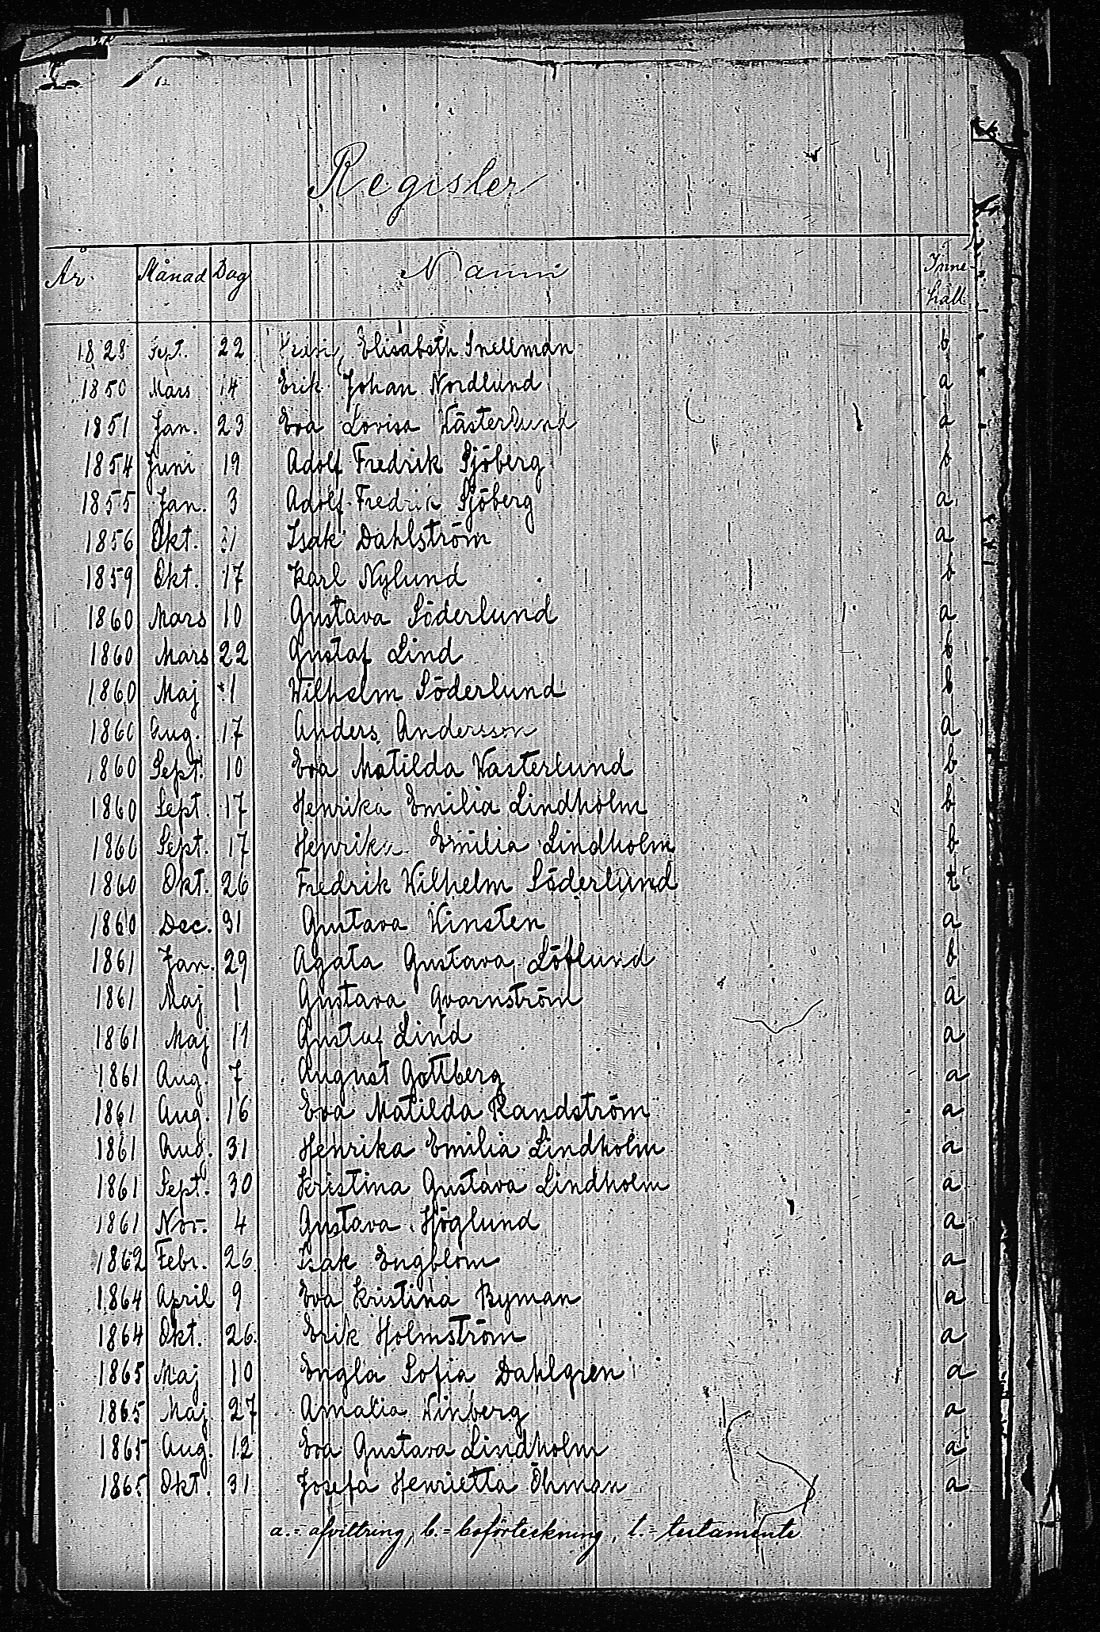 Register
År. Månad Dag Namn Inne-håll
1828 Sept. 22 Elisabeth Snellman b
1850 Mars 14 Erik Johan Nordlund a
1851 Jan. 23 Eva Lovisa Wästerlund a
1854 Juni 19 Adolf Fredrik Sjöberg b
1855 Jan. 3 Adolf Fredrik Sjöberg a
1856 Okt. 31 Isak Dahlström a
1859 Okt. 17 Karl Nylund b
1860 Mars 10 Gustava Söderlund a
1860 Mars 22 Gustaf Lind b
1860 Maj 1 Wilhelm Söderlund b
1860 Aug. 17 Anders Andersson a
1860 Sept. 10 Eva Matilda Wasterlund b
1860 Sept. 17 Henrika Emilia Lindholm b
1860 Sept. 17 Henrika Emilia Lindholm b
1860 Okt. 26 Fredrik Wilhelm Söderlund t
1860 Dec. 31 Gustava Winsten a
1861 Jan. 29 Agata Gustava Löflund b
1861 Maj 1 Gustava Qvarnström a
1861 Maj 11 Gustaf Lind a
1861 Aug. 7 August Gottberg a
1861 Aug. 16 Eva Matilda Randström a
1861 Aug. 31 Henrika Emilia Lindholm a
1861 Sept. 30 Kristina Gustava Lindholm a
1861 Nov. 4 Gustava Höglund a
1862 Febr. 26 Isak Engblom a
1864 April 9 Eva Kristina Byman a
1864 Okt. 26. Erik Holmström a
1865 Maj 10 Engla Sofia Dahlgren a
1865 Maj 27 Amalia Winberg a
1865 Aug. 12 Eva Gustava Lindholm a
1865 Okt. 31 Josefa Henrietta Öhman a
a.= afvittring, b.= boförteckning, t.= testamente